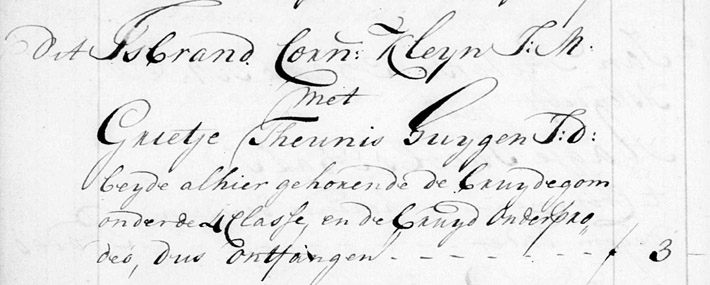 Dit IJsbrand Corn: Kleyn J: M:
met
Grietje Theunis Guygen J: D:
beyde alhier gehorende de Bruydegom
onder de 4 Classe, en de Bruyd onder pro
deo, dus ontfangen - - - - - - - f 3 -